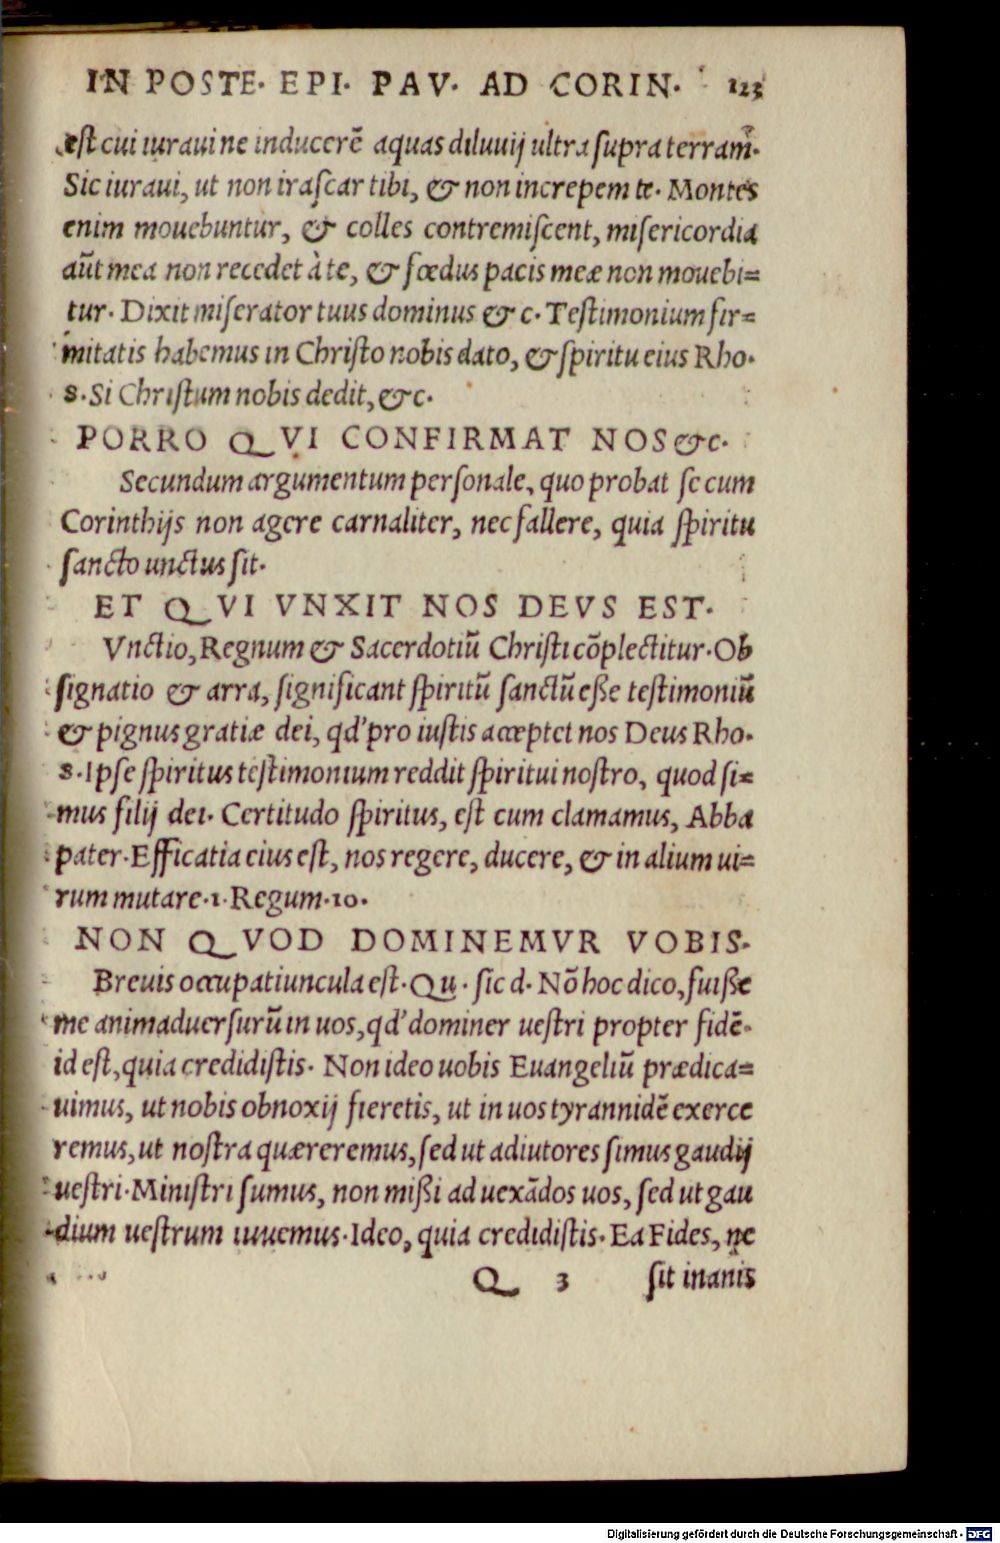 IN POSTE. EPI. PAV. AD CORIN. 123
est cui iuraui ne inducerē aquas diluuij ultra supra terram.
Sic iuraui, ut non irascar tibi, & non increpem te. Montes
enim mouebuntur, & colles contremiscent, misericordia
aūt mea non recedet à te, & fœdus pacis meæ non mouebi=
tur. Dixit miserator tuus dominus &c. Testimonium fir=
mitatis habemus in Christo nobis dato, & spiritu eius Rho.
8. Si Christum nobis dedit, &c.
PORRO QVI CONFIRMAT NOS &c.
Secundum argumentum personale, quo probat se cum
Corinthijs non agere carnaliter, nec fallere, quia spiritu
sancto unctus sit.
ET QVI VNXIT NOS DEVS EST.
Vnctio, Regnum & Sacerdotiū Christi cōplectitur. Ob
signatio & arra, significant spiritū sanctū eße testimoniū
& pignus gratiæ dei, qd' pro iustis acceptet nos Deus Rho.
8. Ipse spiritus testimonium reddit spiritui nostro, quod si=
mus filij dei. Certitudo spiritus, est cum clamamus, Abba
pater. Efficatia eius est, nos regere, ducere, & in alium ui=
rum mutare. 1. Regum. 10.
NON QVOD DOMINEMVR VOBIS.
Breuis occupatiuncula est. Qu. sic d. Nō hoc dico, fuiße
me animaduersurū in uos, qd' dominer uestri propter fidē.
id est, quia credidistis. Non ideo uobis Euangeliū prædica=
uimus, ut nobis obnoxij fieretis, ut in uos tyrannidē exerce
remus, ut nostra quæreremus, sed ut adiutores simus gaudij
uestri. Ministri sumus, non mißi ad uexādos uos, sed ut gau
dium uestrum iuuemus. Ideo, quia credidistis. Ea Fides, ne
Q 3 sit inanis
Digitalisierung gefördert durch die Deutsche Forschungsgemeinschaft - DFG